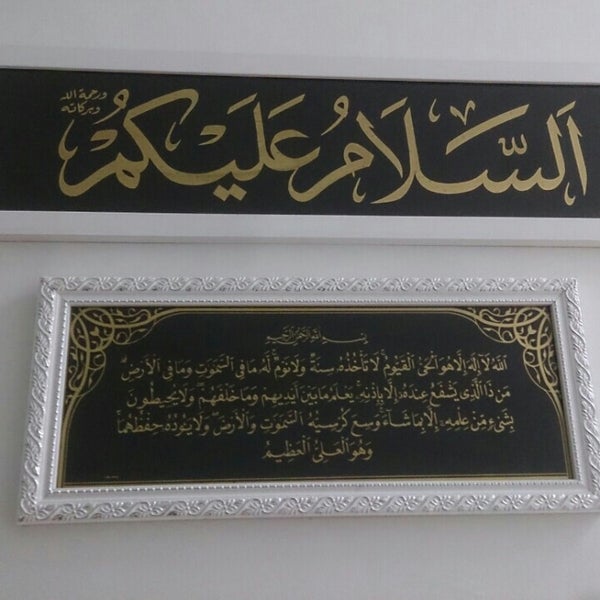 اَلسَّلَامُ عَلَيْكُمْ
ورحمة الله
وبركاته
بسم الله الرحمن الرحيم
اَللّٰهُ لَٓا اِلٰهَ اِلَّا هُوَ اَلْحَيُّ الْقَيُّومُ لَا تَأْخُذُهُ سِنَةٌ وَلَا نَوْمٌ لَهُ مَا فِي السَّمٰوَاتِ وَمَا فِي الْاَرْضِ
مَنْ ذَا الَّذِي يَشْفَعُ عِنْدَهُٓ اِلَّا بِاِذْنِهِ يَعْلَمُ مَا بَيْنَ اَيْدِيهِمْ وَمَا خَلْفَهُمْ وَلَا يُحِيطُونَ
بِشَيْءٍ مِنْ عِلْمِهِٓ اِلَّا بِمَا شَٓاءَ وَسِعَ كُرْسِيُّهُ السَّمٰوَاتِ وَالْاَرْضَ وَلَا يَؤُدُهُ حِفْظُهُمَا
وَهُوَ الْعَلِيُّ الْعَظِيمُ